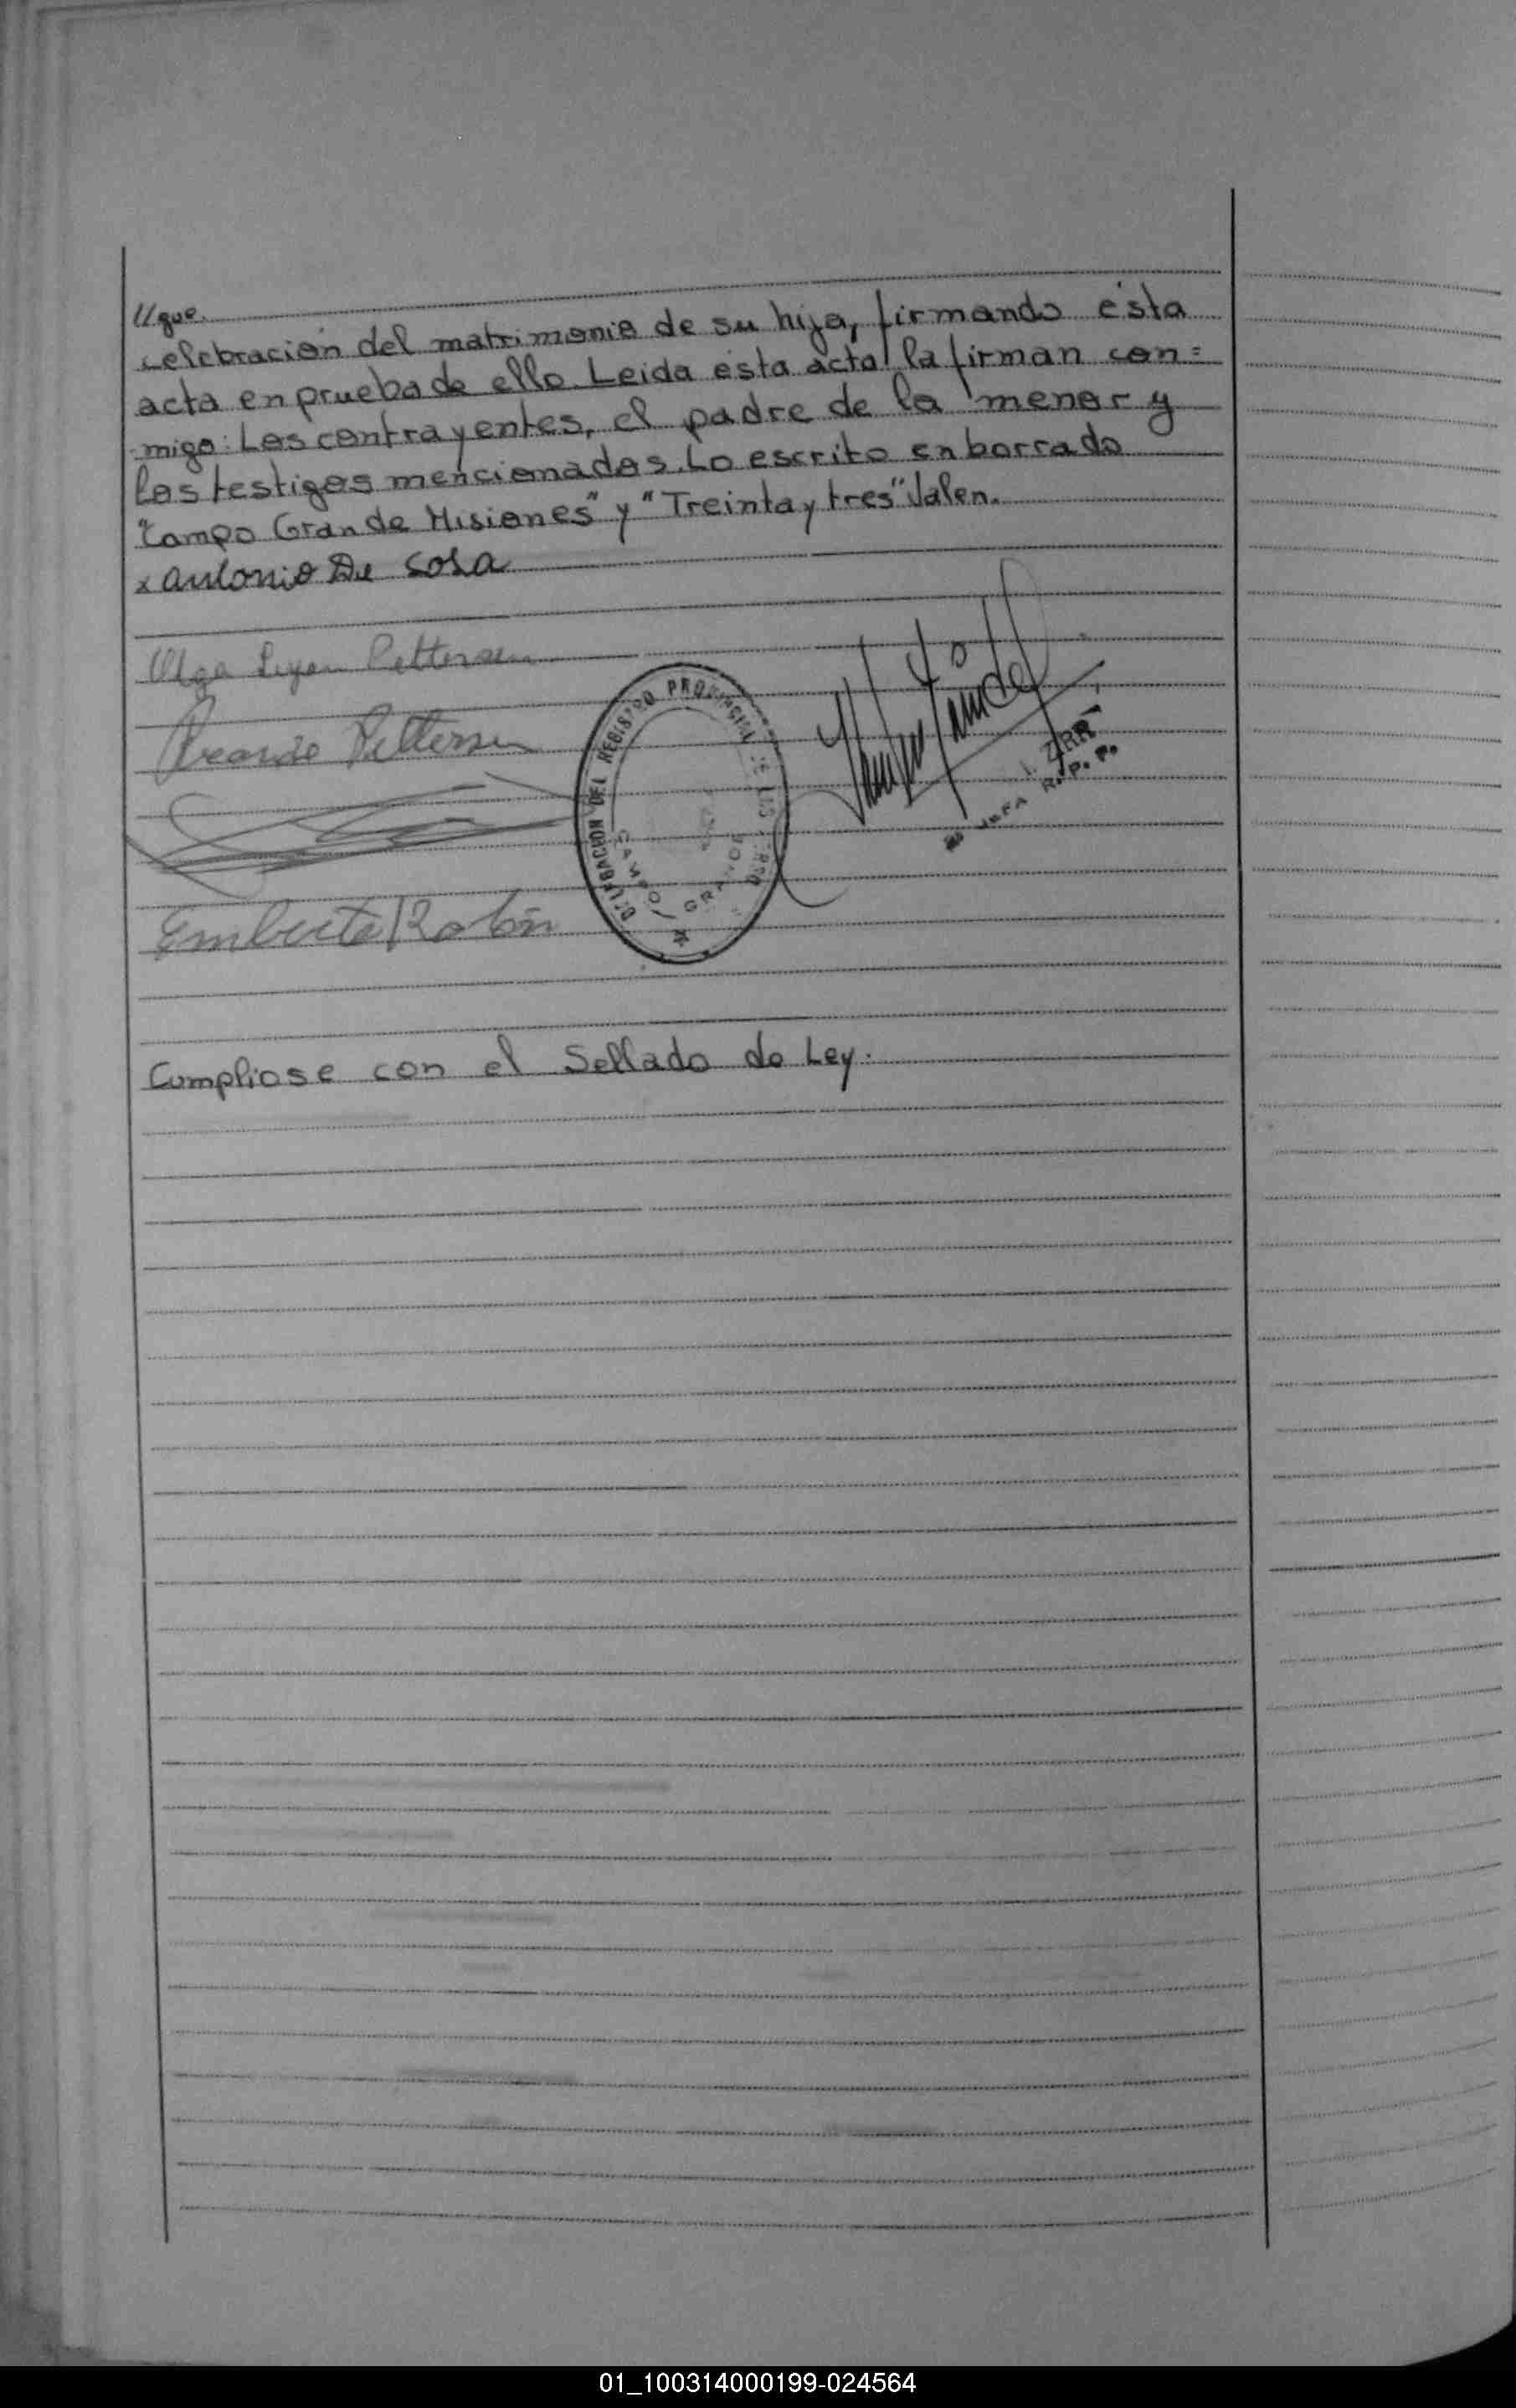 //que.
celebración del matrimonio de su hija, firmando ésta
acta en prueba de ello. Leida ésta acta, la firman con=
migo: Los contrayentes, el padre de la menor y
los testigos mencionados. Lo escrito en borrado
"Campo Grande Misiones" y "Treinta y tres" Valen.
x Antonio De Sosa
Olga Pettersen
Ricardo Pettersen
DELEGACION DEL REGISTRO PROVINCIAL DE LAS
CAMPO GRANDE
JEFA R.P.P.
Cumpliose con el Sellado de Ley.
01_100314000199-024564